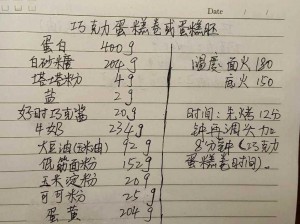 巧克力蛋糕卷或蛋糕胚
蛋白 400g
白砂糖 204g
塔塔粉 4g
盐 2g
好时巧克酱 20g
牛奶 234g
大豆油(玉米油) 92g
低筋面粉 152g
玉米淀粉 20g
可可粉 25g
蛋黄 204g
Date
温度: 面火180
底火150
时间: 先烤12分
钟再调头加
8分钟(巧克力
蛋糕卷时间)。